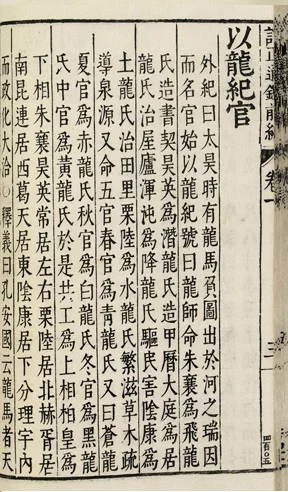 通鑑前編
卷一
以龍紀官
外紀曰太昊時有龍馬負圖出於河之瑞因
而名官始以龍紀號曰龍師命朱襄爲飛龍
氏造書契昊英爲潛龍氏造甲曆大庭爲居
龍氏治屋廬渾沌爲降龍氏驅民害陰康爲
土龍氏治田里栗陸爲水龍氏繁滋草木疏
導泉源又命五官春官爲青龍氏又曰蒼龍
夏官爲赤龍氏秋官爲白龍氏冬官爲黑龍
氏中官爲黃龍氏於是共工爲上相柏皇爲
下相朱襄昊英常居左右栗陸居北赫胥居
南昆連居西葛天居東陰康居下分理宇內
而政化大洽○釋義曰孔安國云龍馬者天